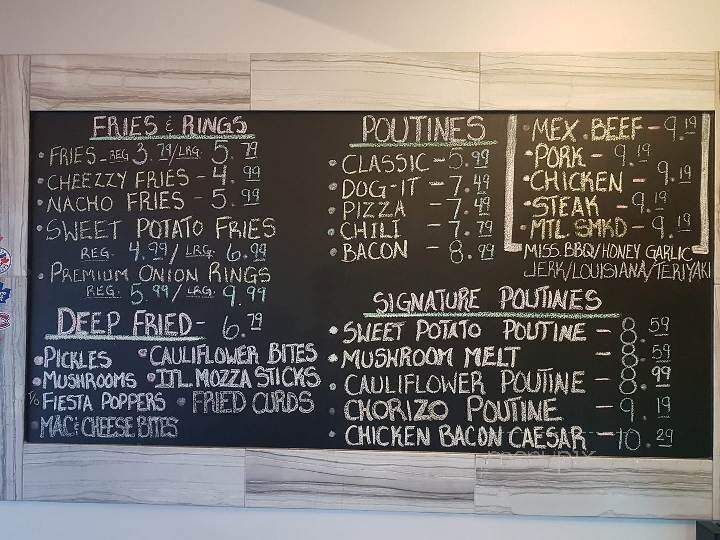 FRIES & RINGS
• FRIES - REG. 3.79/LRG. 5.79
• CHEEZZY FRIES - 4.99
• NACHO FRIES - 5.99
• SWEET POTATO FRIES
REG. 4.99 / LRG. 6.99
• PREMIUM ONION RINGS
REG. 5.99 / LRG. 9.99
DEEP FRIED - 6.79
• PICKLES • CAULIFLOWER BITES
• MUSHROOMS • ITL. MOZZA STICKS
FIESTA POPPERS • FRIED CURDS
• MAC & CHEESE BITES
POUTINES
• CLASSIC - 5.99
• DOG-IT - 7.49
• PIZZA - 7.49
• CHILI - 7.79
• BACON - 8.99
• MEX. BEEF - 9.19
• PORK - 9.19
• CHICKEN - 9.19
• STEAK - 9.19
• MTL. SMKD - 9.19
MISS. BBQ/HONEY GARLIC
JERK/LOUISIANA/TERIYAKI
SIGNATURE POUTINES
• SWEET POTATO POUTINE - 8.59
• MUSHROOM MELT - 8.59
• CAULIFLOWER POUTINE - 8.99
• CHORIZO POUTINE - 9.19
• CHICKEN BACON CAESAR - 10.29
menupix